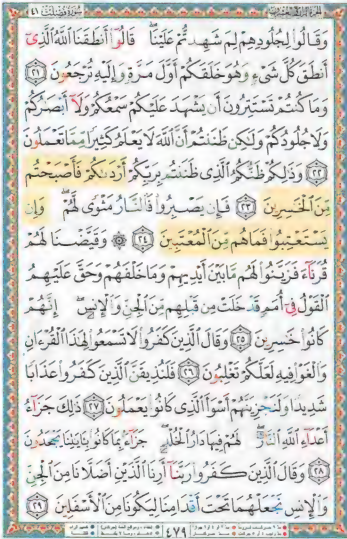 الجزء الرابع والعشرون سورة فصلت ٤١
وَقَالُوا۟ لِجُلُودِهِمْ لِمَ شَهِدتُّمْ عَلَيْنَا ۖ قَالُوٓا۟ أَنطَقَنَا ٱللَّهُ ٱلَّذِىٓ
أَنطَقَ كُلَّ شَىْءٍ وَهُوَ خَلَقَكُمْ أَوَّلَ مَرَّةٍ وَإِلَيْهِ تُرْجَعُونَ ٢١
وَمَا كُنتُمْ تَسْتَتِرُونَ أَن يَشْهَدَ عَلَيْكُمْ سَمْعُكُمْ وَلَآ أَبْصَـٰرُكُمْ
وَلَا جُلُودُكُمْ وَلَـٰكِن ظَنَنتُمْ أَنَّ ٱللَّهَ لَا يَعْلَمُ كَثِيرًا مِّمَّا تَعْمَلُونَ
٢٢ وَذَٰلِكُمْ ظَنُّكُمُ ٱلَّذِى ظَنَنتُم بِرَبِّكُمْ أَرْدَىٰكُمْ فَأَصْبَحْتُم
مِّنَ ٱلْخَـٰسِرِينَ ٢٣ فَإِن يَصْبِرُوا۟ فَٱلنَّارُ مَثْوًى لَّهُمْ ۖ وَإِن
يَسْتَعْتِبُوا۟ فَمَا هُم مِّنَ ٱلْمُعْتَبِينَ ٢٤ ۞ وَقَيَّضْنَا لَهُمْ
قُرَنَآءَ فَزَيَّنُوا۟ لَهُم مَّا بَيْنَ أَيْدِيهِمْ وَمَا خَلْفَهُمْ وَحَقَّ عَلَيْهِمُ
ٱلْقَوْلُ فِىٓ أُمَمٍ قَدْ خَلَتْ مِن قَبْلِهِم مِّنَ ٱلْجِنِّ وَٱلْإِنسِ ۖ إِنَّهُمْ
كَانُوا۟ خَـٰسِرِينَ ٢٥ وَقَالَ ٱلَّذِينَ كَفَرُوا۟ لَا تَسْمَعُوا۟ لِهَـٰذَا ٱلْقُرْءَانِ
وَٱلْغَوْا۟ فِيهِ لَعَلَّكُمْ تَغْلِبُونَ ٢٦ فَلَنُذِيقَنَّ ٱلَّذِينَ كَفَرُوا۟ عَذَابًا
شَدِيدًا وَلَنَجْزِيَنَّهُمْ أَسْوَأَ ٱلَّذِى كَانُوا۟ يَعْمَلُونَ ٢٧ ذَٰلِكَ جَزَآءُ
أَعْدَآءِ ٱللَّهِ ٱلنَّارُ ۖ لَهُمْ فِيهَا دَارُ ٱلْخُلْدِ ۖ جَزَآءًۢ بِمَا كَانُوا۟ بِـَٔايَـٰتِنَا يَجْحَدُونَ
٢٨ وَقَالَ ٱلَّذِينَ كَفَرُوا۟ رَبَّنَآ أَرِنَا ٱلَّذَيْنِ أَضَلَّانَا مِنَ ٱلْجِنِّ
وَٱلْإِنسِ نَجْعَلْهُمَا تَحْتَ أَقْدَامِنَا لِيَكُونَا مِنَ ٱلْأَسْفَلِينَ ٢٩
٤٧٩